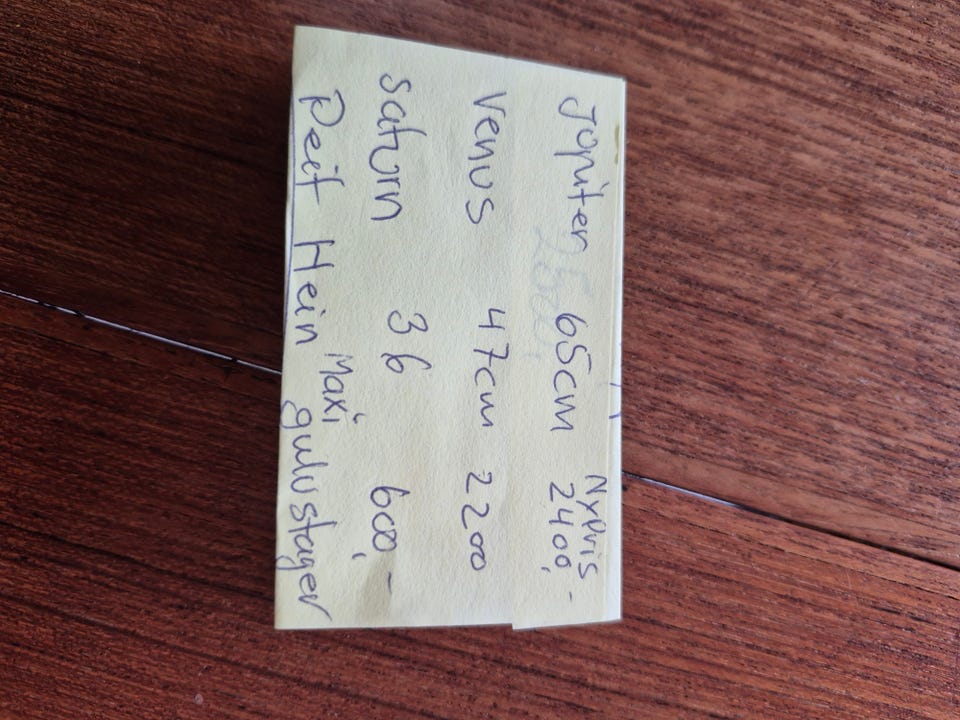 Nypris
Jupiter 65cm 2400,-
Venus 47cm 2200
Saturn 36 600,-
Maxi
Peit Hein gulvstager